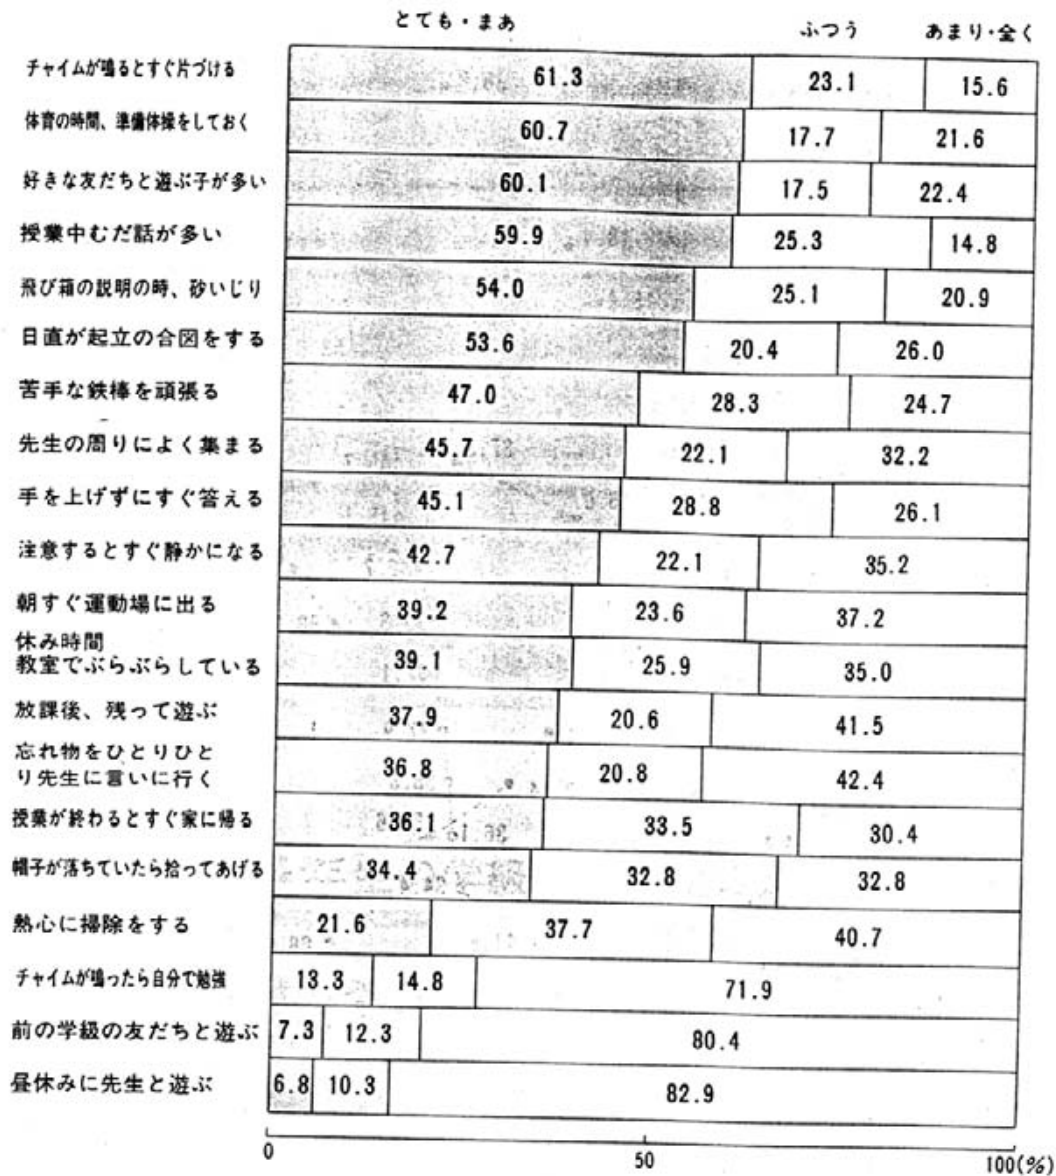 とても・まあ ふつう あまり・全く
チャイムが鳴るとすぐ片づける 61.3 23.1 15.6
体育の時間、準備体操をしておく 60.7 17.7 21.6
好きな友だちと遊ぶ子が多い 60.1 17.5 22.4
授業中むだ話が多い 59.9 25.3 14.8
飛び箱の説明の時、砂いじり 54.0 25.1 20.9
日直が起立の合図をする 53.6 20.4 26.0
苦手な鉄棒を頑張る 47.0 28.3 24.7
先生の周りによく集まる 45.7 22.1 32.2
手を上げずにすぐ答える 45.1 28.8 26.1
注意するとすぐ静かになる 42.7 22.1 35.2
朝すぐ運動場に出る 39.2 23.6 37.2
休み時間
教室でぶらぶらしている 39.1 25.9 35.0
放課後、残って遊ぶ 37.9 20.6 41.5
忘れ物をひとりひと
り先生に言いに行く 36.8 20.8 42.4
授業が終わるとすぐ家に帰る 36.1 33.5 30.4
帽子が落ちていたら拾ってあげる 34.4 32.8 32.8
熱心に掃除をする 21.6 37.7 40.7
チャイムが鳴ったら自分で勉強 13.3 14.8 71.9
前の学級の友だちと遊ぶ 7.3 12.3 80.4
昼休みに先生と遊ぶ 6.8 10.3 82.9
0 50 100(%)